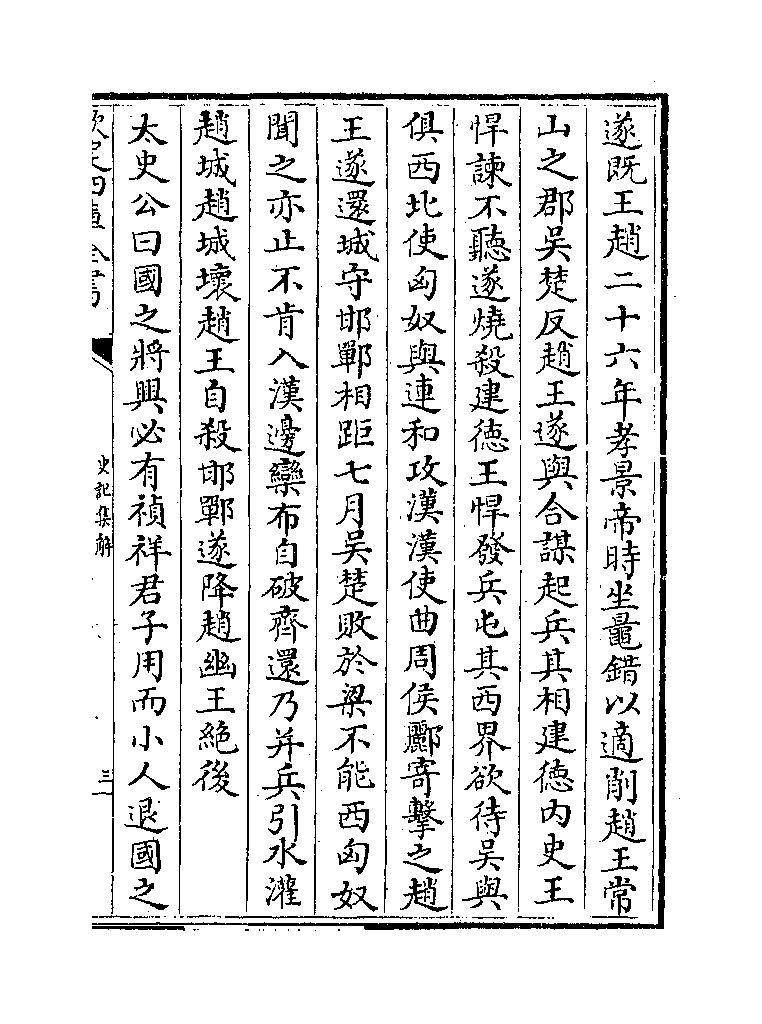 遂既王趙二十六年孝景帝時坐鼂錯以適削趙王常
山之郡吳楚反趙王遂與合謀起兵其相建德内史王
悍諫不聽遂燒殺建德王悍發兵屯其西界欲待吳與
俱西北使匈奴與連和攻漢漢使曲周侯酈寄擊之趙
王遂還城守邯鄲相距七月吳楚敗於梁不能西匈奴
聞之亦止不肯入漢邊欒布自破齊還乃并兵引水灌
趙城趙城壞趙王自殺邯鄲遂降趙幽王絶後
太史公曰國之將興必有禎祥君子用而小人退國之
欽定四庫全書
史記集解
三